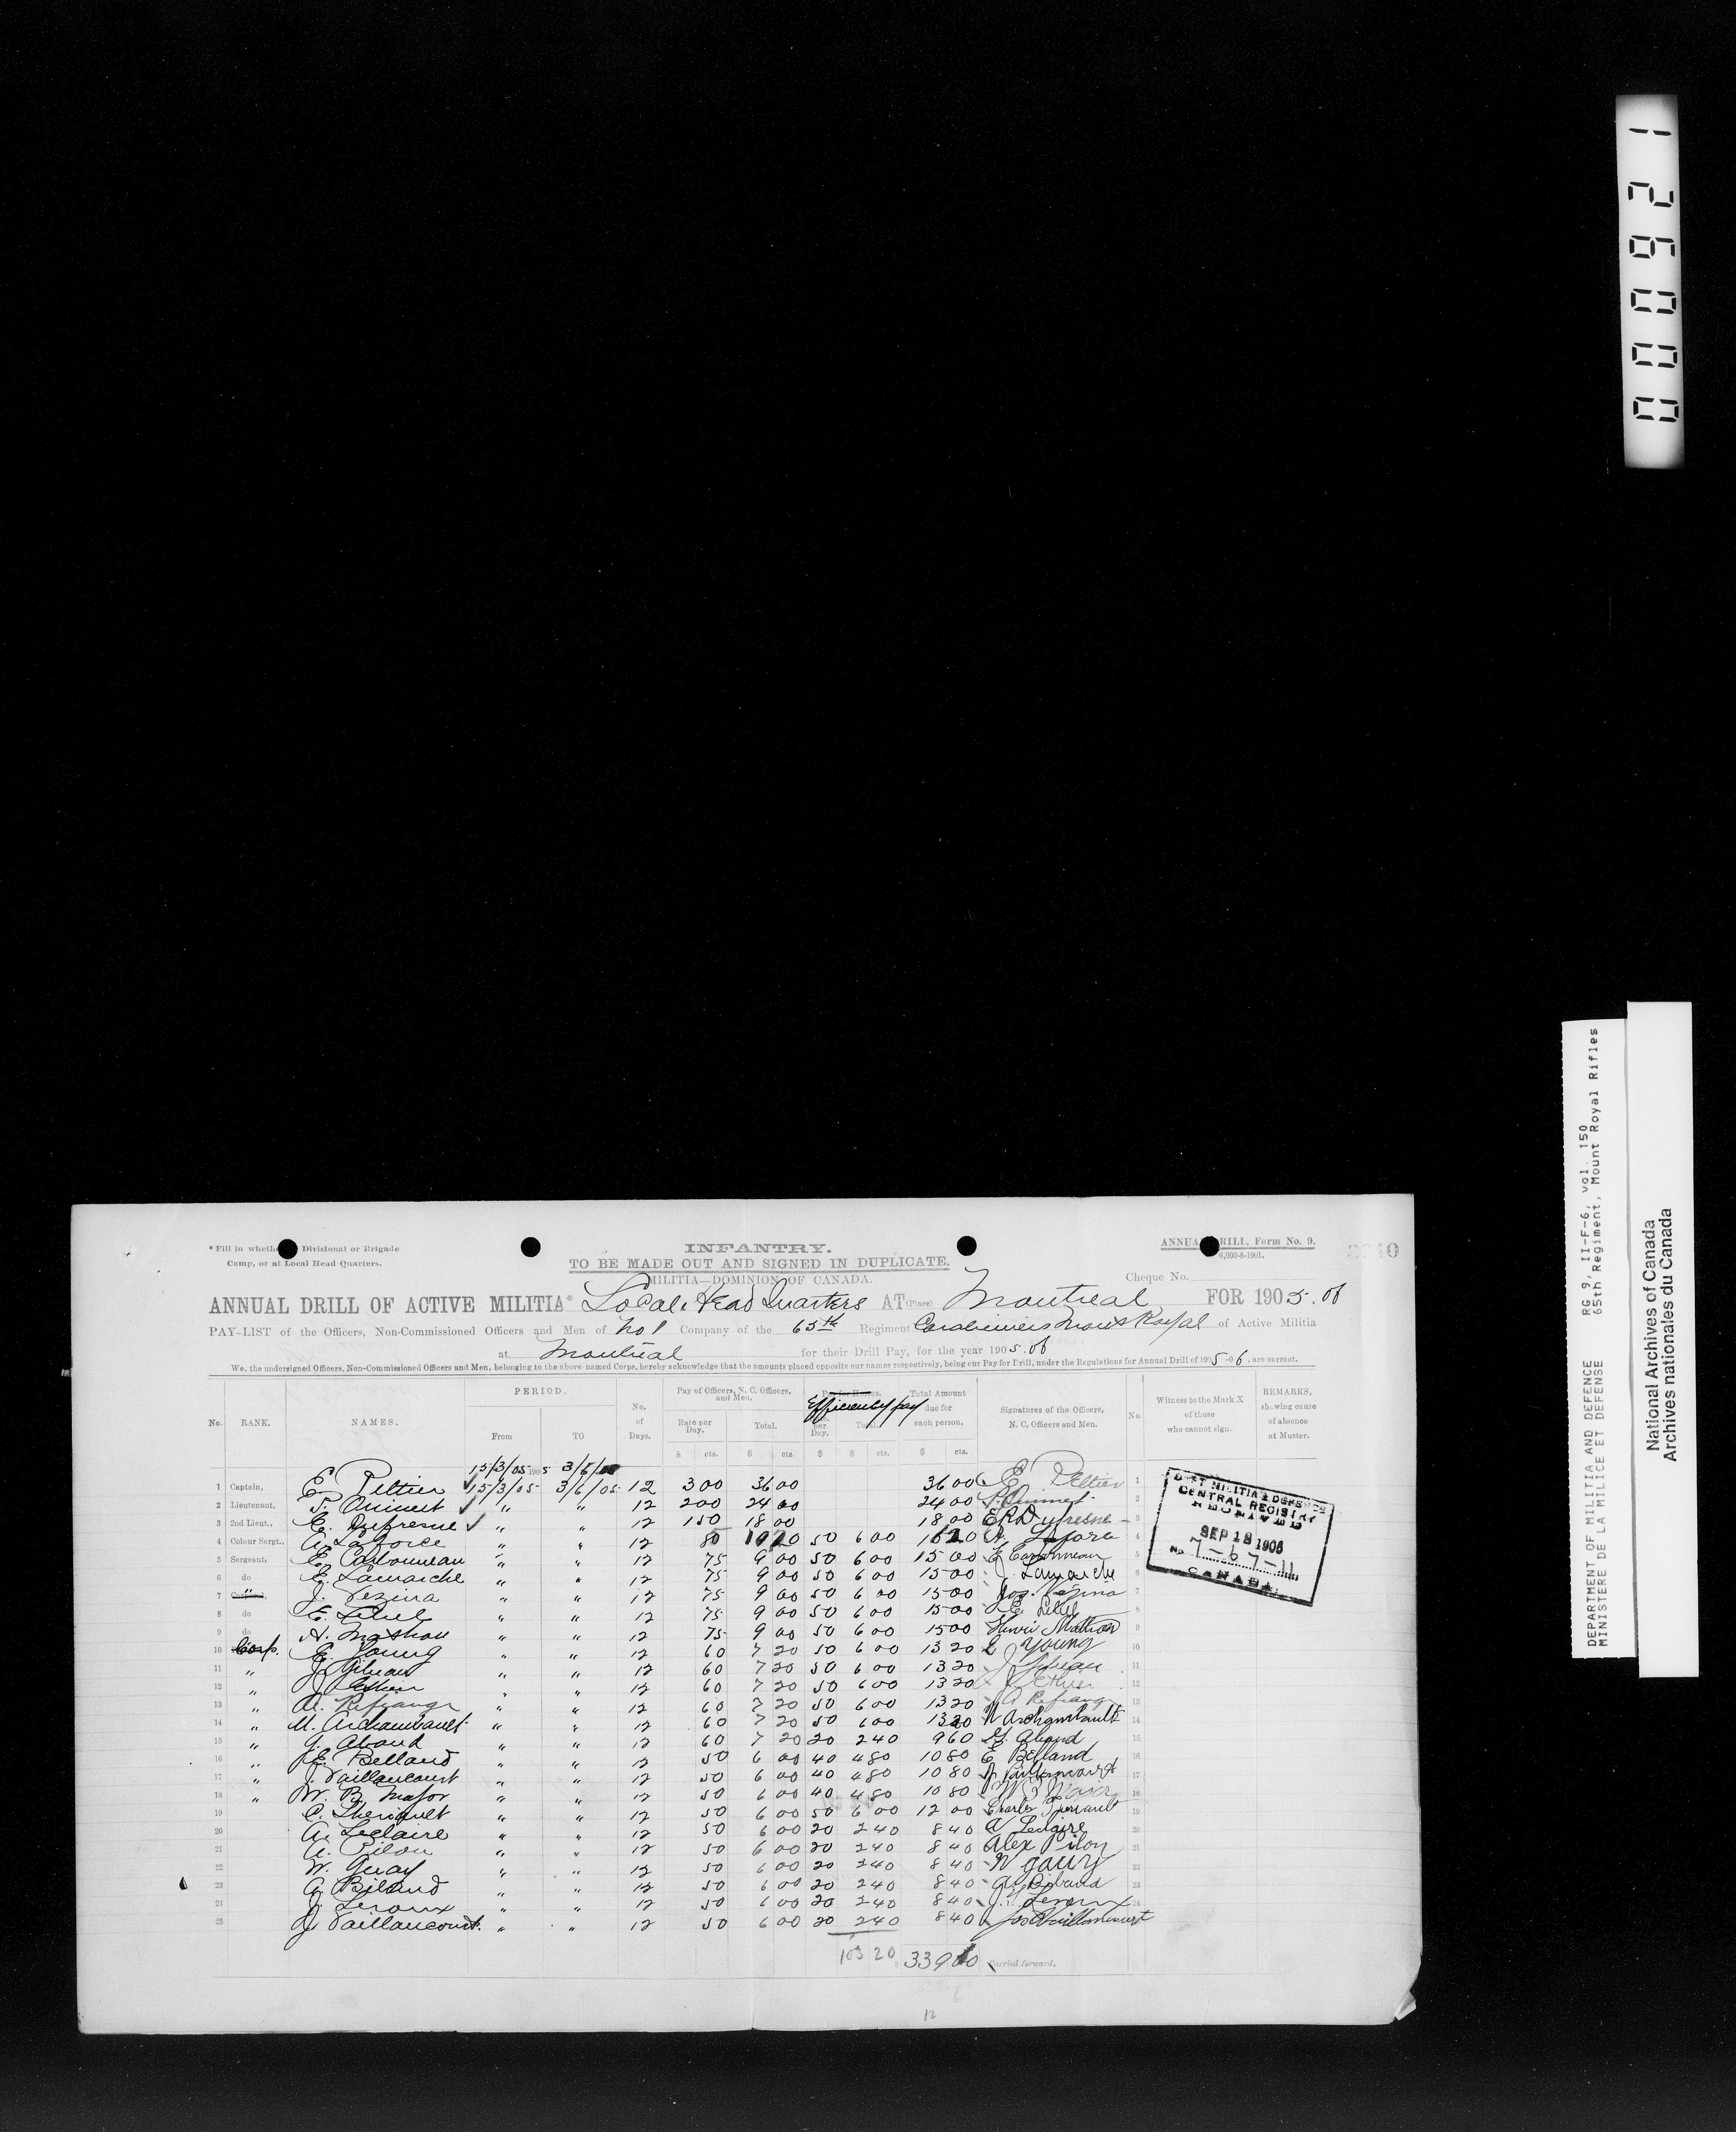 000921
DEPARTMENT OF MILITIA AND DEFENCE RG 9, II-F-6, vol. 150
MINISTERE DE LA MILICE ET DEFENSE 65th Regiment, Mount Royal Rifles
National Archives of Canada
Archives nationales du Canada
INFANTRY.
TO BE MADE OUT AND SIGNED IN DUPLICATE.
MILITIA—DOMINION OF CANADA.
* Fill in whether Divisional or Brigade
Camp, or at Local Head Quarters.
ANNUAL DRILL, Form No. 9.
6,000-8-1901.
Cheque No.
ANNUAL DRILL OF ACTIVE MILITIA* Local Head Quarters AT (Place) Montreal FOR 1905.06
PAY-LIST of the Officers, Non-Commissioned Officers and Men of No 1 Company of the 65th Regiment Carabiniers Mont Royal of Active Militia
at Montreal for their Drill Pay, for the year 1905.06
We, the undersigned Officers, Non-Commissioned Officers and Men, belonging to the above-named Corps, hereby acknowledge that the amounts placed opposite our names respectively, being our Pay for Drill, under the Regulations for Annual Drill of 1905-06, are correct.
No. RANK. NAMES. PERIOD. From TO No. of Days. Pay of Officers, N. C. Officers, and Men. Rate per Day. Total. Pay for Horses. Efficiency pay per Day. Total. Total Amount due for each person. Signatures of the Officers, N. C. Officers and Men. No. Witness to the Mark X of those who cannot sign. REMARKS, showing cause of absence at Muster.
$ cts. $ cts. $ $ cts. $ cts.
15/3/05 1905 3/6/
1 Captain, E. Peltier 15/3/05 3/6/05 12 3 00 36 00 36 00 E Peltier 1
2 Lieutenant, " " 12 2 00 24 00 24 00 2
3 2nd Lieut., E. Dufresne " " 12 1 50 18 00 18 00 Dufresne 3
4 Colour Sergt., A. Laforce " " 12 80 50 6 00 4
5 Sergeant, E. " " 12 75 9 00 50 6 00 15 00 E 5
6 do E. Lamarche " " 12 75 9 00 50 6 00 15 00 Lamarche 6
7 Corporal, " J. Vezina " " 12 75 9 00 50 6 00 15 00 Jos. Vezina 7
8 do E. " " 12 75 9 00 50 6 00 15 00 8
9 do H. " " 12 75 9 00 50 6 00 15 00 Henri 9
10 Corp. E. Young " " 12 60 7 20 50 6 00 13 20 E Young 10
11 " J. " " 12 60 7 20 50 6 00 13 20 J 11
12 " J. " " 12 60 7 20 50 6 00 13 20 12
13 " A. " " 12 60 7 20 50 6 00 13 20 A 13
14 " Archambault " " 12 60 7 20 50 6 00 13 20 Archambault 14
15 " G. " " 12 60 7 20 20 2 40 9 60 G. 15
16 " E. Belland " " 12 50 6 00 40 4 80 10 80 E Belland 16
17 " Vaillancourt " " 12 50 6 00 40 4 80 10 80 Vaillancourt 17
18 " W. B. Major " " 12 50 6 00 40 4 80 10 80 Major 18
19 C. " " 12 50 6 00 50 6 00 12 00 Charles 19
20 A. Leclaire " " 12 50 6 00 20 2 40 8 40 A Leclaire 20
21 A. Pilon " " 12 50 6 00 20 2 40 8 40 Alex Pilon 21
22 " " 12 50 6 00 20 2 40 8 40 22
23 A. " " 12 50 6 00 20 2 40 8 40 23
24 J. Leroux " " 12 50 6 00 20 2 40 8 40 J. Leroux 24
25 J. Vaillancourt. " " 12 50 6 00 20 2 40 8 40 Jos Vaillancourt
103 20 Carried forward,
DEPT MILITIA & DEFENCE
CENTRAL REGISTRY
RECEIVED
SEP 18 1905
No. 7-67-11
CANADA.
12